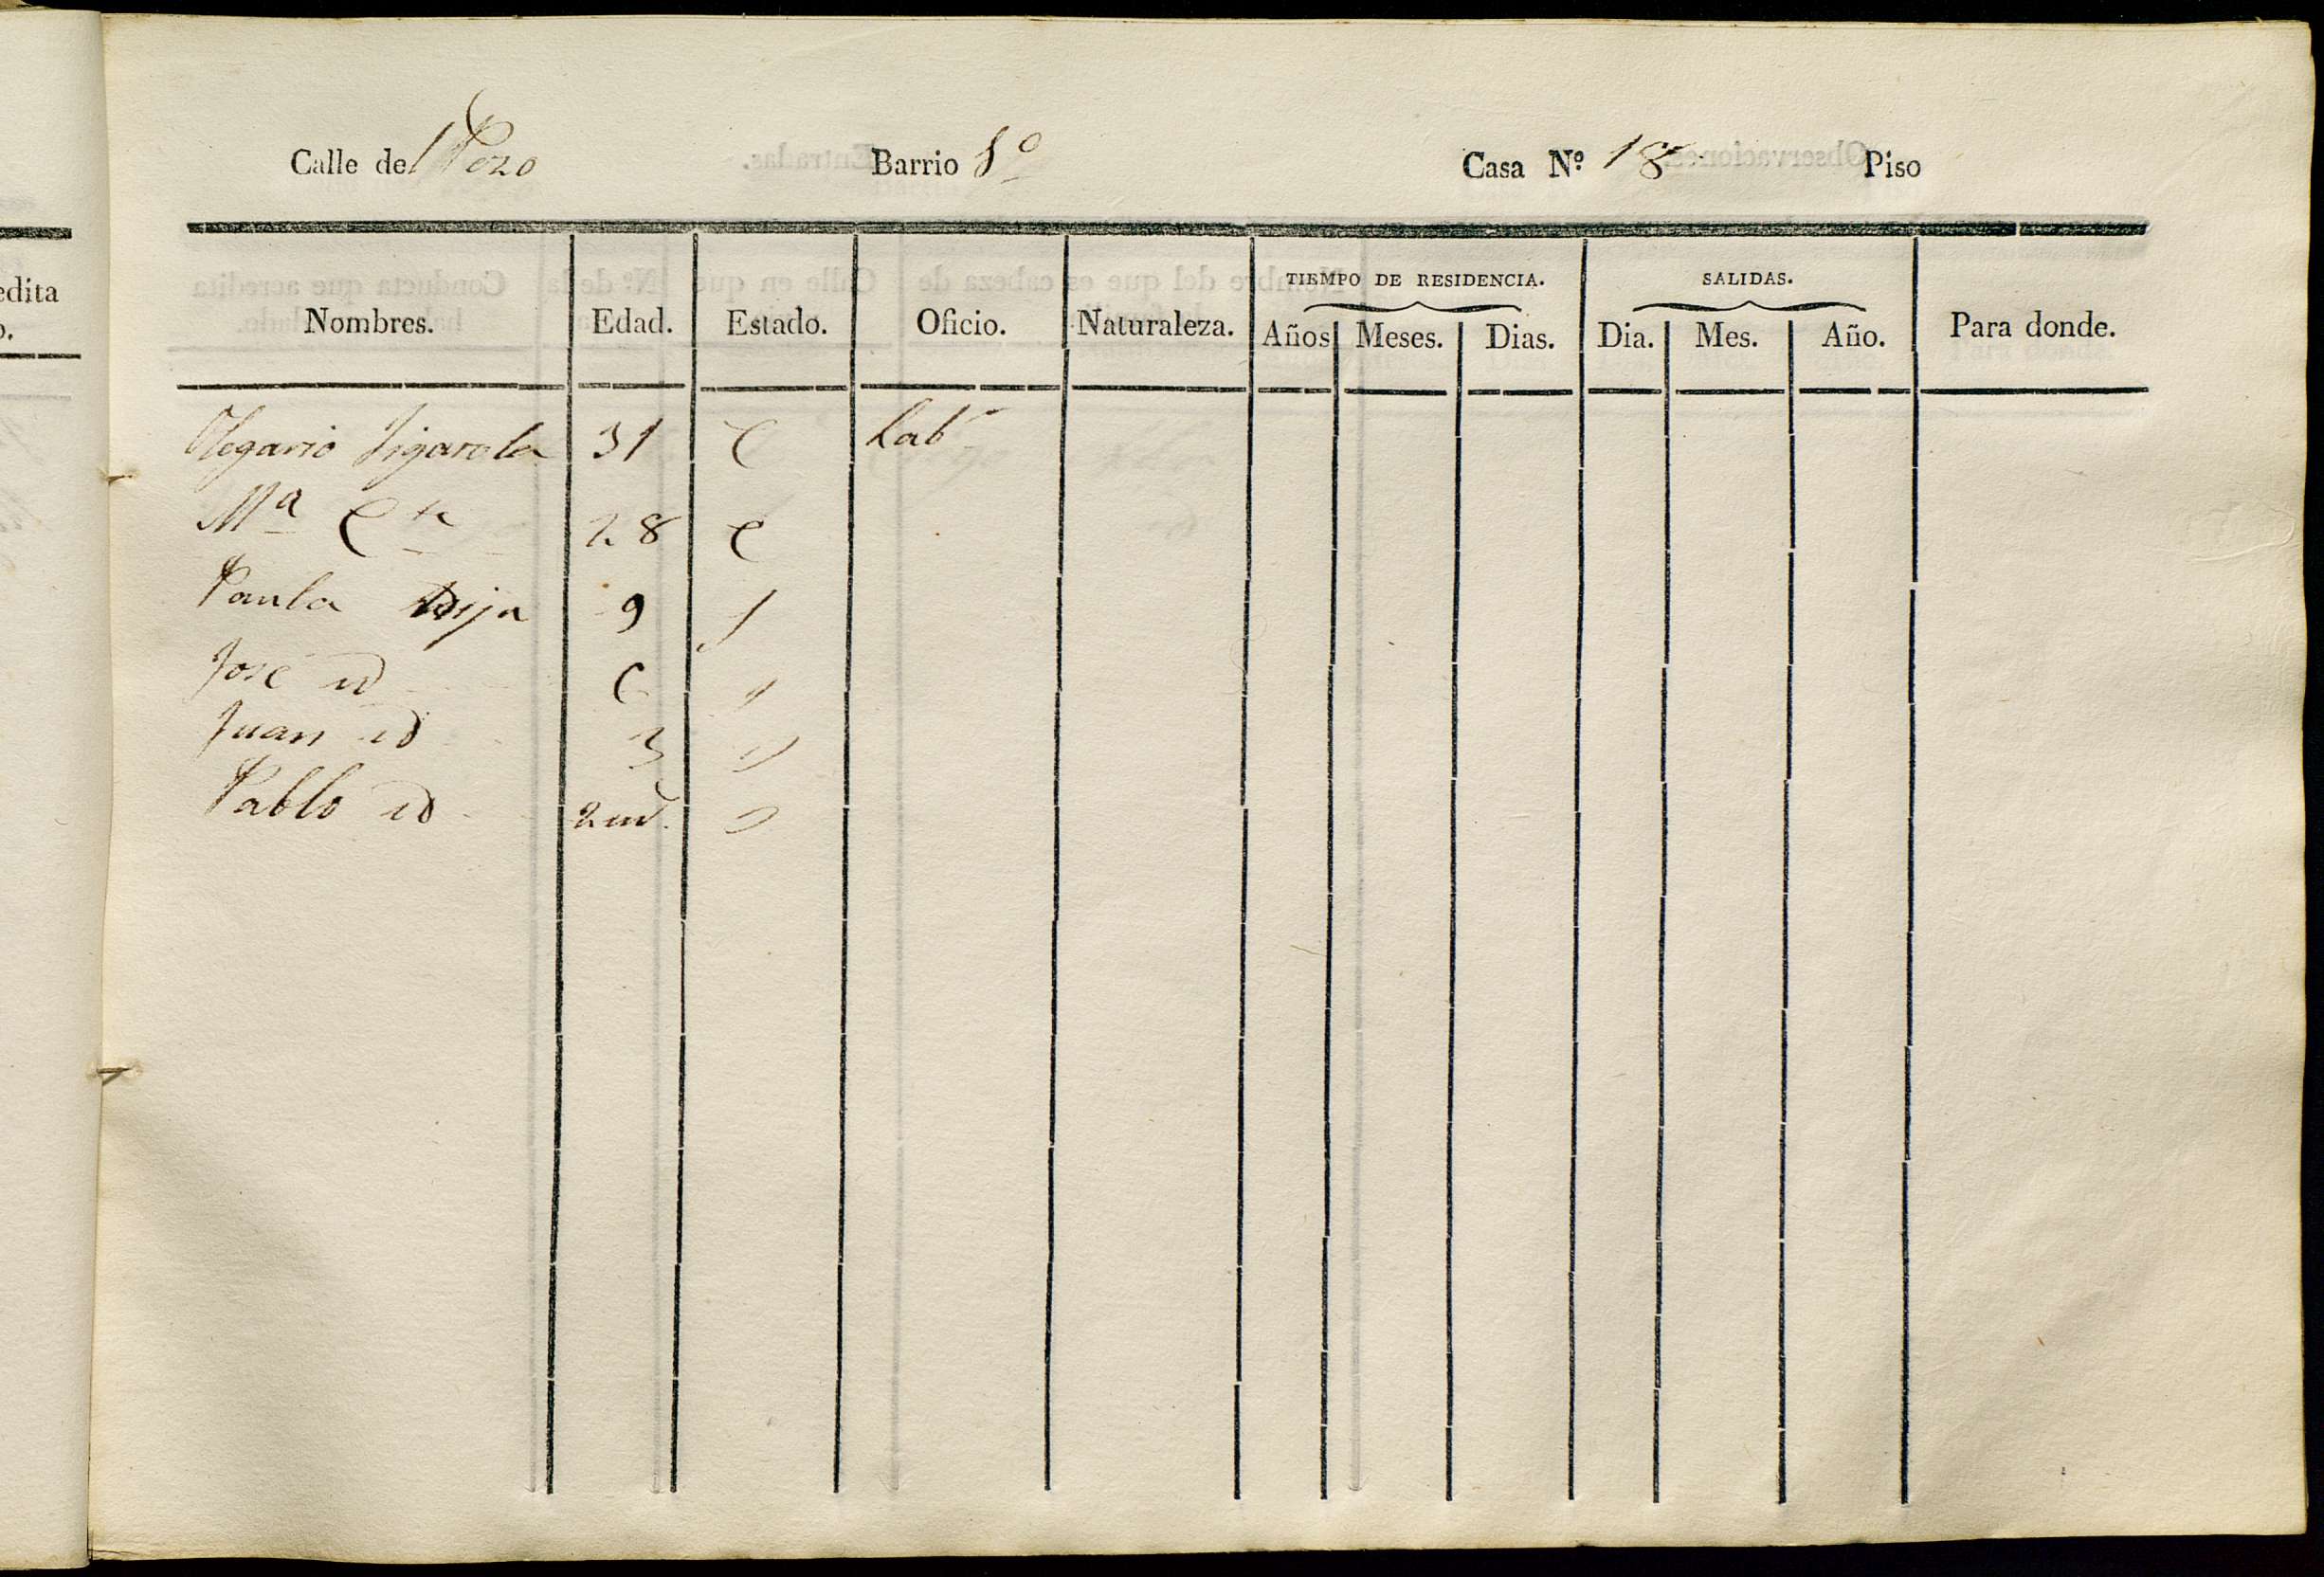 edita
o.
Calle del Pozo Barrio 1º Casa Nº 18 Piso
TIEMPO DE RESIDENCIA. SALIDAS.
Nombres. Edad. Estado. Oficio. Naturaleza. Años Meses. Dias. Dia. Mes. Año. Para donde.
Olegario Figarola 31 C Labr
Mª 28 C
Paula hija 9 S
José id
Juan id 3
Pablo id 2 ms.